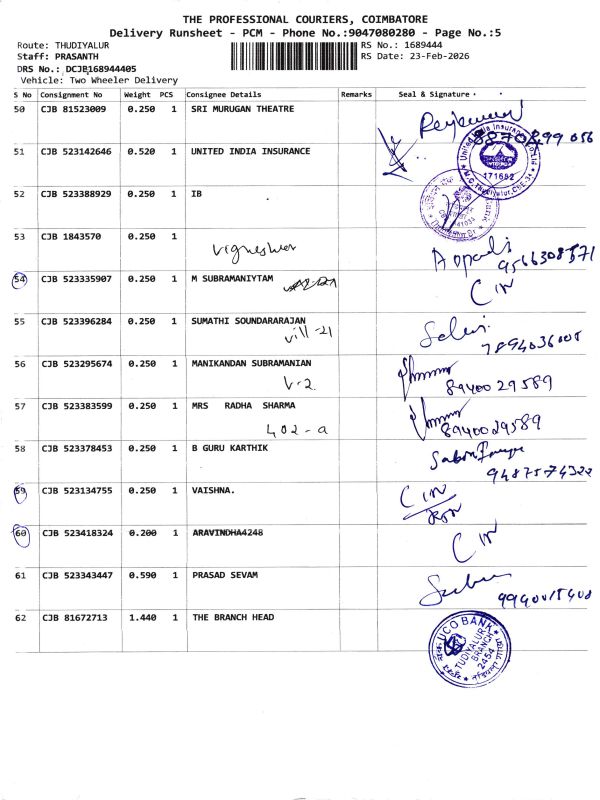 THE PROFESSIONAL COURIERS, COIMBATORE
Delivery Runsheet - PCM - Phone No.:9047080280 - Page No.:5
Route: THUDIYALUR RS No.: 1689444
Staff: PRASANTH RS Date: 23-Feb-2026
DRS No.: DCJB168944405
Vehicle: Two Wheeler Delivery
S No Consignment No Weight PCS Consignee Details Remarks Seal & Signature
50 CJB 81523009 0.250 1 SRI MURUGAN THEATRE
8870899056
51 CJB 523142646 0.520 1 UNITED INDIA INSURANCE
171682
52 CJB 523388929 0.250 1 IB
53 CJB 1843570 0.250 1
Vigneshwer
9566308571
54 CJB 523335907 0.250 1 M SUBRAMANIYTAM
CIN
55 CJB 523396284 0.250 1 SUMATHI SOUNDARARAJAN
Vill-21
7894036008
56 CJB 523295674 0.250 1 MANIKANDAN SUBRAMANIAN
V-2
8940029589
57 CJB 523383599 0.250 1 MRS RADHA SHARMA
402-a
8940029589
58 CJB 523378453 0.250 1 B GURU KARTHIK
9487574322
59 CJB 523134755 0.250 1 VAISHNA.
CIN
60 CJB 523418324 0.200 1 ARAVINDHA4248
CIN
61 CJB 523343447 0.590 1 PRASAD SEVAM
9940015408
62 CJB 81672713 1.440 1 THE BRANCH HEAD
UCO BANK
TUDIYALUR
BRANCH
2454